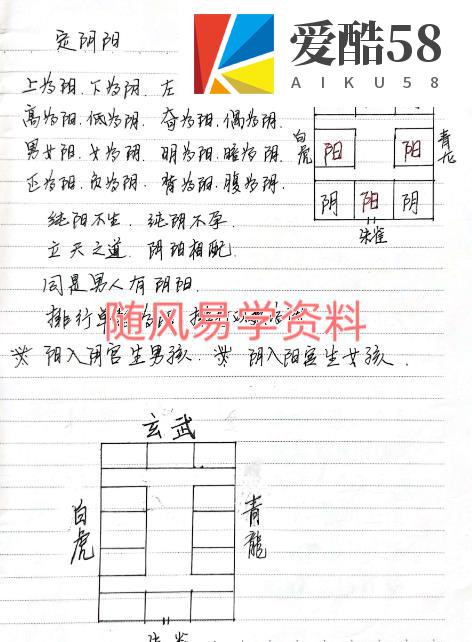 定阴阳
爱酷58
AIKU58
上为阳.下为阴.左
高为阳.低为阴.奇为阳.偶为阴.
男女阳.女为阴.明为阳.暗为阴.
正为阳.负为阴.背为阳.腹为阴.
纯阳不生.纯阴不孕.
立天之道.阴阳相配.
同是男人有阴阳.
排行单
随风易学资料
※阳入阴宫生男孩.※阴入阳宫生女孩.
白虎
青龙
阳 阳
阴 阳 阴
朱雀
玄武
白虎
青龍